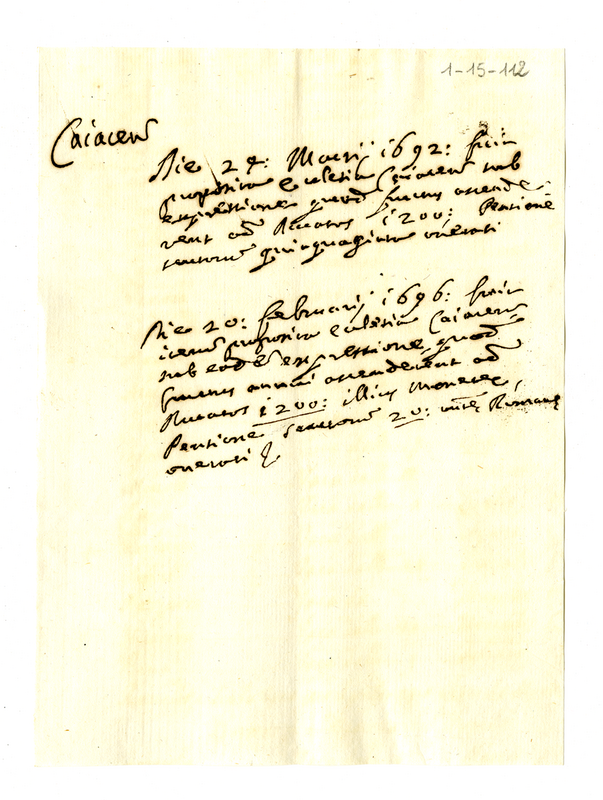 1-15-112
Caiacen
Die 24: Martij 1692: fuit
proposita Ecclesia Caiacen sub
expressione quod fructus ascende-
rent ad Ducatos 1200: Pensione
scutorum quinquaginta onerati
Die 20: februarij 1696: fuit
iterum proposita Ecclesia Caiacen
sub eadem expressione quod
fructus annui ascenderent ad
Ducatos 1200: illius Monetæ,
Pensione scutorum 20: Romanæ
onerati